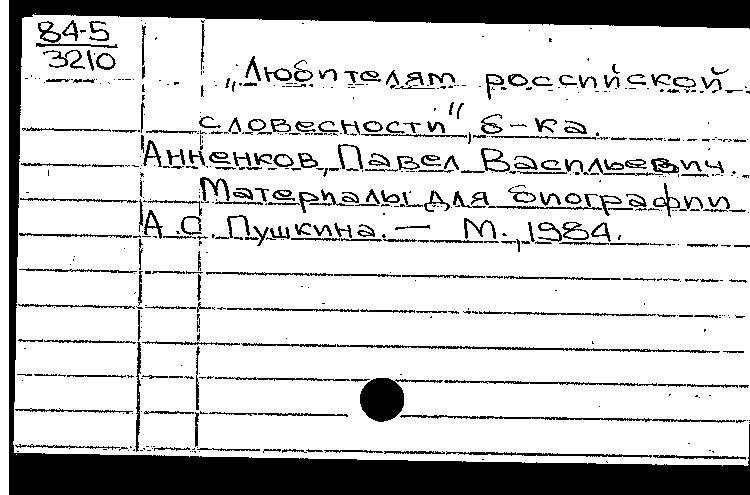 84-5
3210
„Любителям российской
словесности", б-ка.
Анненков, Павел Васильевич.
Материалы для биографии
А.С. Пушкина. — М., 1984.